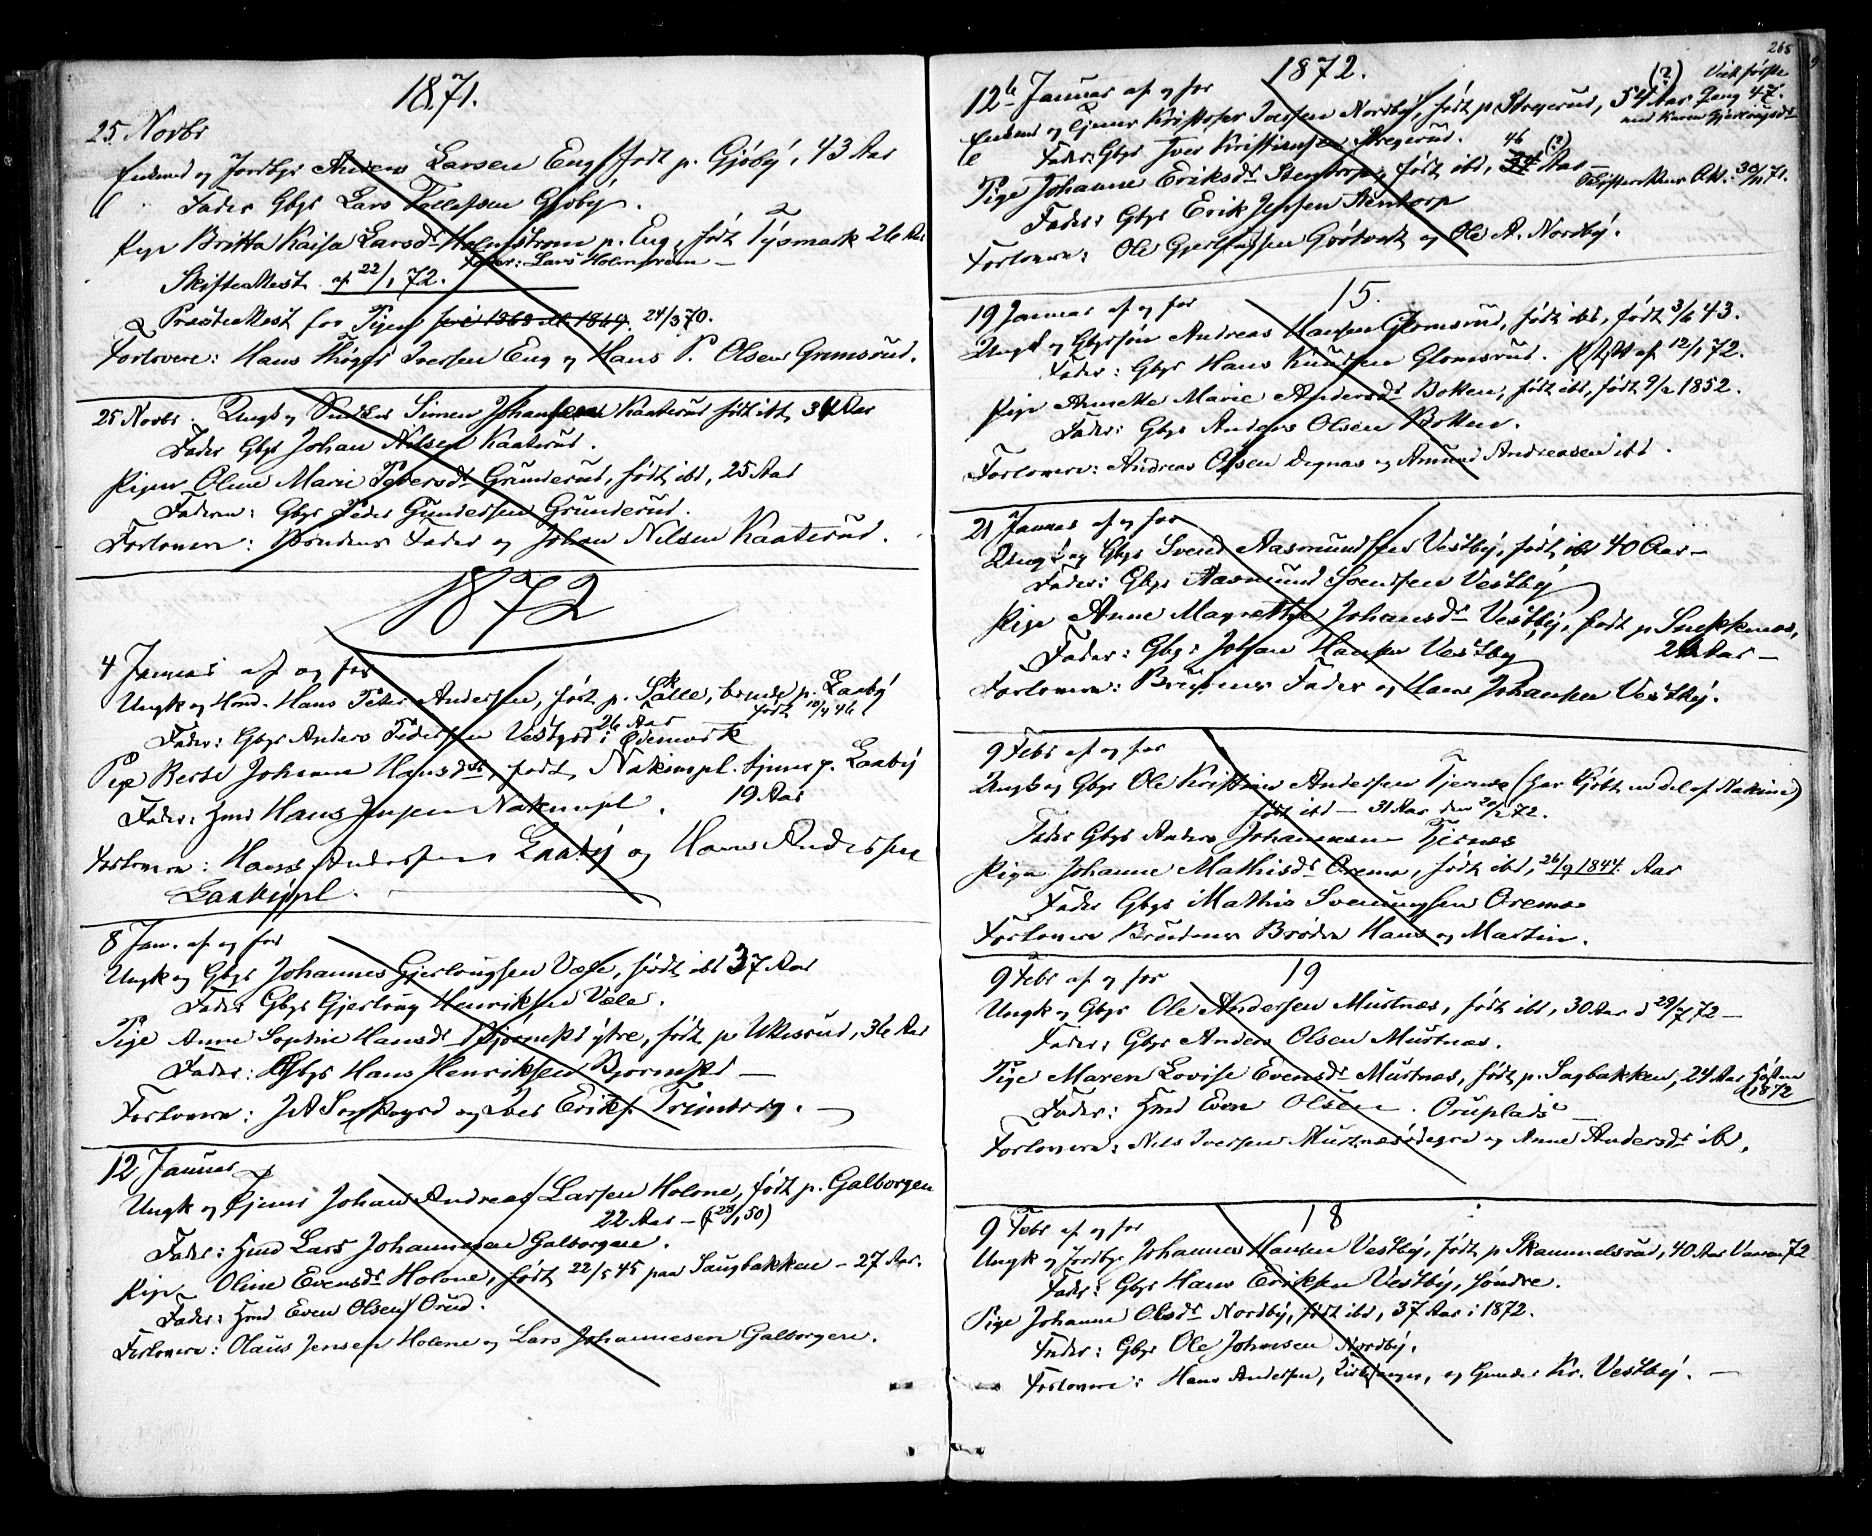 1871.
25 Novbr
Enkmd og Jordbr Anders Larsen Eng født p. Gjøby, 43 Aar
Fader Gbgr Lars Tollefsen Gjøby.
Pige Britta Kaisa Larsdr Holmstrøm p. Eng, født Tysmark 26 Aar
Fader: Lars Holmstrøm —
Skifteattest af 22/1 72.
Præsteattest for Pigen 24/3 70.
Forlovere: Hans Iversen Eng og Hans P. Olsen Gremsrud.
25 Novbr. Ungk og Simen Johansen Kaaterud født ibd, 34 Aar
Fader Gbgr Johan Nilsen Kaaterud.
Pigen Oline Marie Pedersdr Grunderud, født ibd, 25 Aar
Faderen: Gbgr Peder Gundersen Grunderud.
Forlovere: Brudens Fader og Johan Nilsen Kaaterud.
1872
4 Januar af og for
Ungk og Hmd. Hans Peter Andersen, født p. boende p. Laaby
26 Aar født 10/4 46
Fader: Gbgr Anders Pedersen Vestgrd i Ødemark
Pige Berte Johanne Hansdr, født, Nakimpl. tjener p. Laaby
19 Aar
Fader: Hmd Hans Jensen Nakimpl.
Forlovere: Hans Andersen Laaby og Hans Andersen
Laabypl.
8 Jan. af og for
Ungk og Gbgr Johannes Gjerlougsen Væle, født ibd 37 Aar
Fader Gbgr Gjerloug Henriksen Væle.
Pige Anne Sophie Hansdr ytre, født p. Ukesrud, 36 Aar
Fader: Gbgr Hans Henriksen
Forlovere: og Iver Eriks.
12 Januar
Ungk og Tjener Johan Andreas Larsen Holone, født p. Galborgen
22 Aar — 50)
Fader: Hmd Lars Johannesen Galborgen.
Pige Oline Evensdr Holone, født 22/5 45 paa Saugbakken — 27 Aar.
Fader: Hmd Even Olsen Orud.
Forlovere: Olaus Jensen Holone og Lars Johannesen Galborgen.
268
1872.
12te Januar af og for
Enkmd og Tjener Kristofer Iversen Nordby, født p. Stregerud, 54 Aar (?) Viet første Gang 47.
Fader: Gbgr Iver Kristiansen Stregerud.
46 (?)
Pige Johanne Eriksdr Stentorp, født ibd, 34 Aar — Skifteattest Okt. 30/11 71.
Fader: Gbgr Erik Jensen Stentorp
Forlovere: Ole og Ole A. Nordby.
15.
19 Januar af og for
Ungk og Gbgrsøn Andreas Hansen Glomsrud, født ibd, født 3/6 43.
Fader: Gbgr Hans Knudsen Glomsrud. af 12/1 72.
Pige Annette Marie Andersdr Boken, født ibd, født 9/2 1852.
Fader: Gbgr Anders Olsen Boken.
Forlovere: Andreas Olsen Degnas og Amund Andreasen ibd.
21 Januar af og for
Ungk og Gbgr Svend Aasmundsen Vestby, født ibd 40 Aar —
Fader: Gbgr Aasmund Svendsen Vestby
Pige Anne Magrethe Johansdr Vestby, født p. Snekkenes,
Aar —
Fader: Gbgr Johan Hansen Vestby
Forlovere: Brudens Fader og Hans Johansen Vestby.
9 Febr af og for
Ungk og Gbgr Ole Kristian Andersen Tjernæs (har kjøbt en del af Nakim)
født ibd — 31 Aar den 20/2 72.
Fader Gbgr Anders Johannesen Tjernæs
Pige Johanne Mathisdr Oremo, født ibd, 26/9 1844. Aar
Fader Gbgr Mathis Svenungsen Oremo
Forlovere Brudens Brødre Hans og Martin.
19
9 Febr af og for
Ungk og Gbgr Ole Andersen Mustnæs, født ibd, 30 Aar d 29/7 72 —
Fader: Gbgr Anders Olsen Mustnæs.
Pige Maren Lovise Evensdr Mustnæs, født p. Sagbakken, 24 Aar Høsten
1872
Fader: Hmd Even Olsen. Oruplads —
Forlovere: Nils Iversen Mustnæsødegrd og Anne Andersdr ibd.
18
9 Febr af og for
Ungk og Jordbr Johannes Hansen Vestby, født p. Skammelsrud, 40 Aar Vaaren 72
Fader: Gbgr Hans Eriksen Vestby, søndre.
Pige Johanne Olsdr Nordby, født ibd, 37 Aar i 1872.
Fader: Gbgr Ole Johnsen Nordby.
Forlovere: Hans Andersen, Kirkesanger, og Gunder Kr. Vestby. —